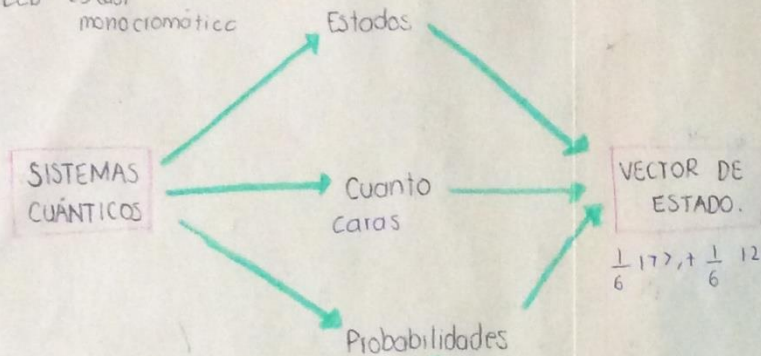 monocromática
Estados
SISTEMAS
CUÁNTICOS
Cuanto
caras
VECTOR DE
ESTADO.
Probabilidades